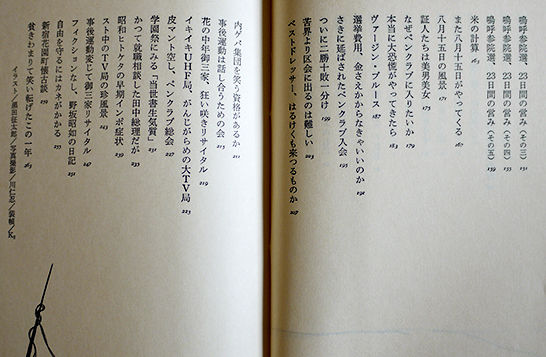 嗚呼参院選、23日間の営み〈その三〉 151
嗚呼参院選、23日間の営み〈その四〉 155
嗚呼参院選、23日間の営み〈その五〉 159
米の計算 163
また八月十五日がやってくる 167
八月十五日の風景 171
証人たちは美男美女 175
なぜペンクラブに入りたいか 179
本当に大恐慌がやってきたら 183
ヴァージン・ブルース 187
選挙費用、金さえかからなきゃいいのか 191
さきに延ばされたペンクラブ入会 195
ついに二勝十敗一分け 199
苦界より区会に出るのは難しい 203
ベストドレッサー、はるけくも来つるものか 207
内ゲバ集団を笑う資格があるか 211
事後運動は話し合うための会 215
花の中年御三家、狂い咲きリサイタル 219
イキイキUHF局、がんじがらめの大TV局 223
皮マント空し、ペンクラブ総会 227
学園祭にみる「当世書生気質」 231
かつて就職相談した田中総理だが 235
昭和ヒトケタの早期インポ症状 239
スト中のTV局の珍風景 243
事後運動変じて御三家リサイタル 247
フィクションなし、野坂昭如の日記 251
自由を守るにはカネがかかる 255
新宿花園町懐古談 259
貧きわまりて笑い転げたこの一年 263
イラスト／黒田征太郎／写真撮影／川仁忍／装幀／K₂